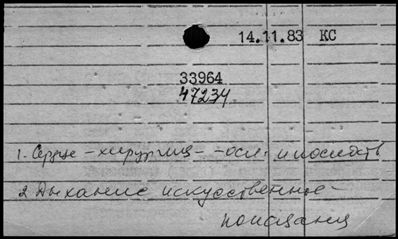 14.11.83 КС
33964
47234
1. Сердце - хирургия - осл. и последств
2 Дыхание искусственное -
показания